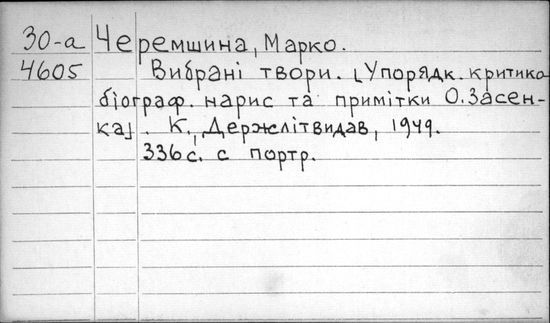 30-а Черемшина, Марко.
4605 Вибрані твори. [Упорядк. критико
біограф. нарис та примітки О.Засен-
ка]. К., Держлітвидав, 1949.
336 с. с портр.